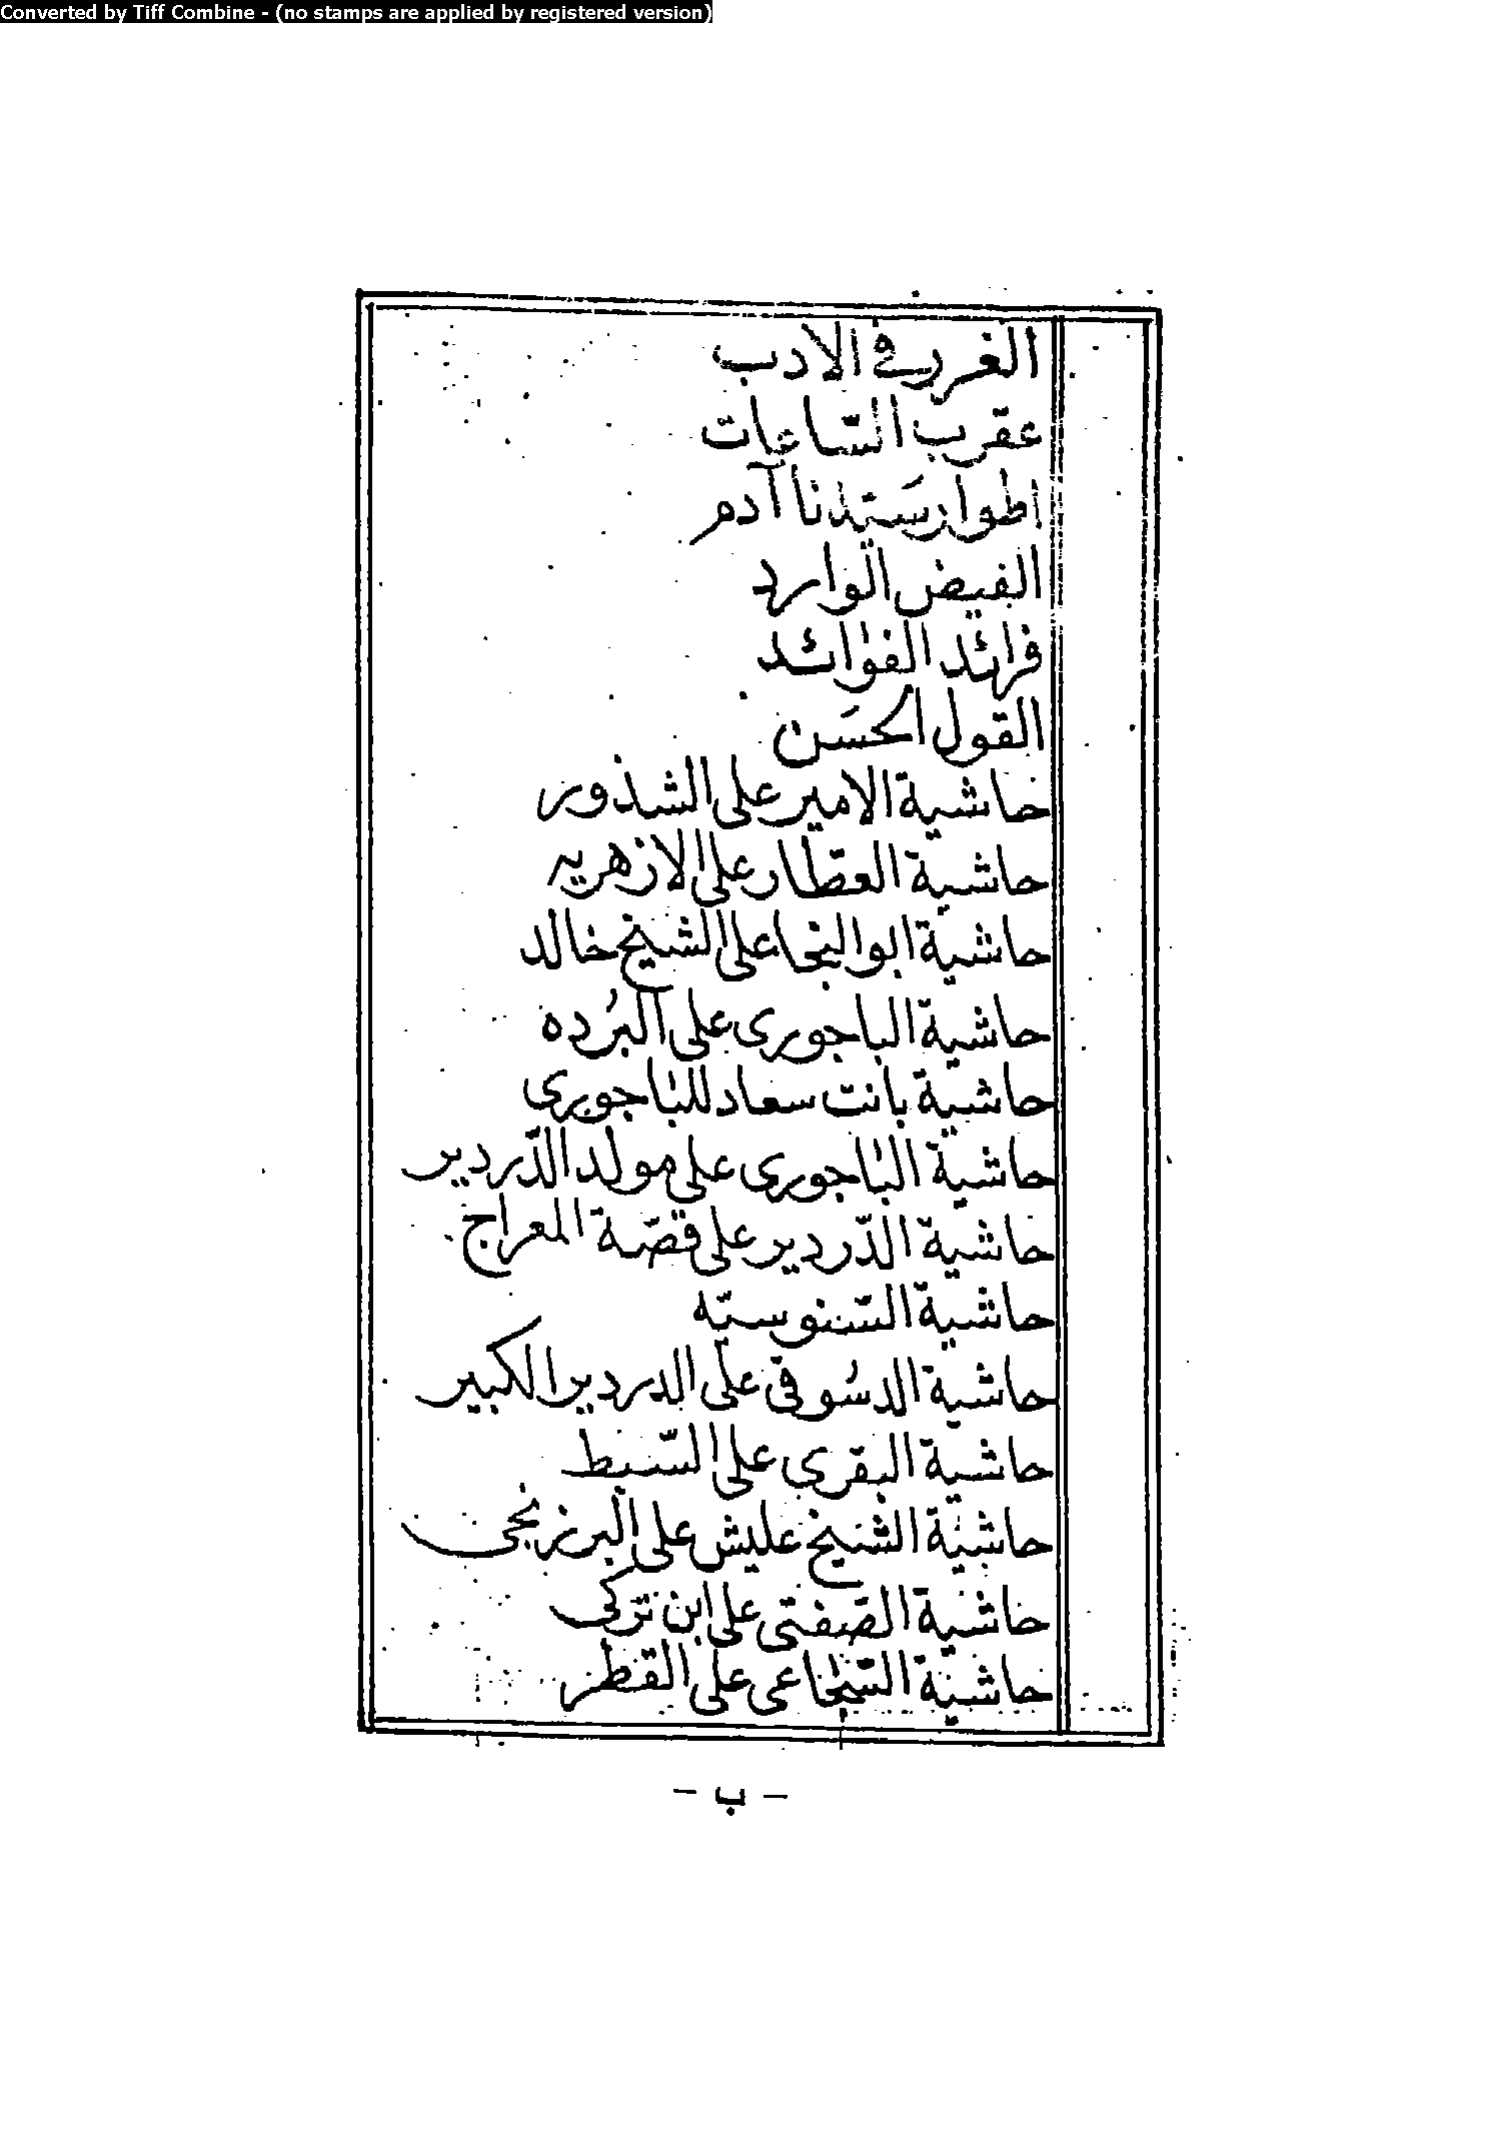 Converted by Tiff Combine - (no stamps are applied by registered version)
الغرر في الادب
عقرب السّاعات
اطوار سَيدنا آدم
الفيض الوارد
فرائد الفوائد
القول الحسَن
حاشية الامير على الشذور
حاشية العطّار على الازهريه
حاشية ابو النجا على الشيخ خالد
حاشية الباجورى على البُرده
حاشية بانت سعاد للباجورى
حاشية الباجورى على مولد الدّردير
حاشية الدّردير على قصّة المعراج
حاشية السّنوسيّه
حاشية الدسُوقى على الدردير الكبير
حاشية البقرى على السّبط
حاشية الشيخ عليش على البرزنجى
حاشية الصّفتى على ابن تركى
حاشيّة السّجاعى على القطر
- ب -